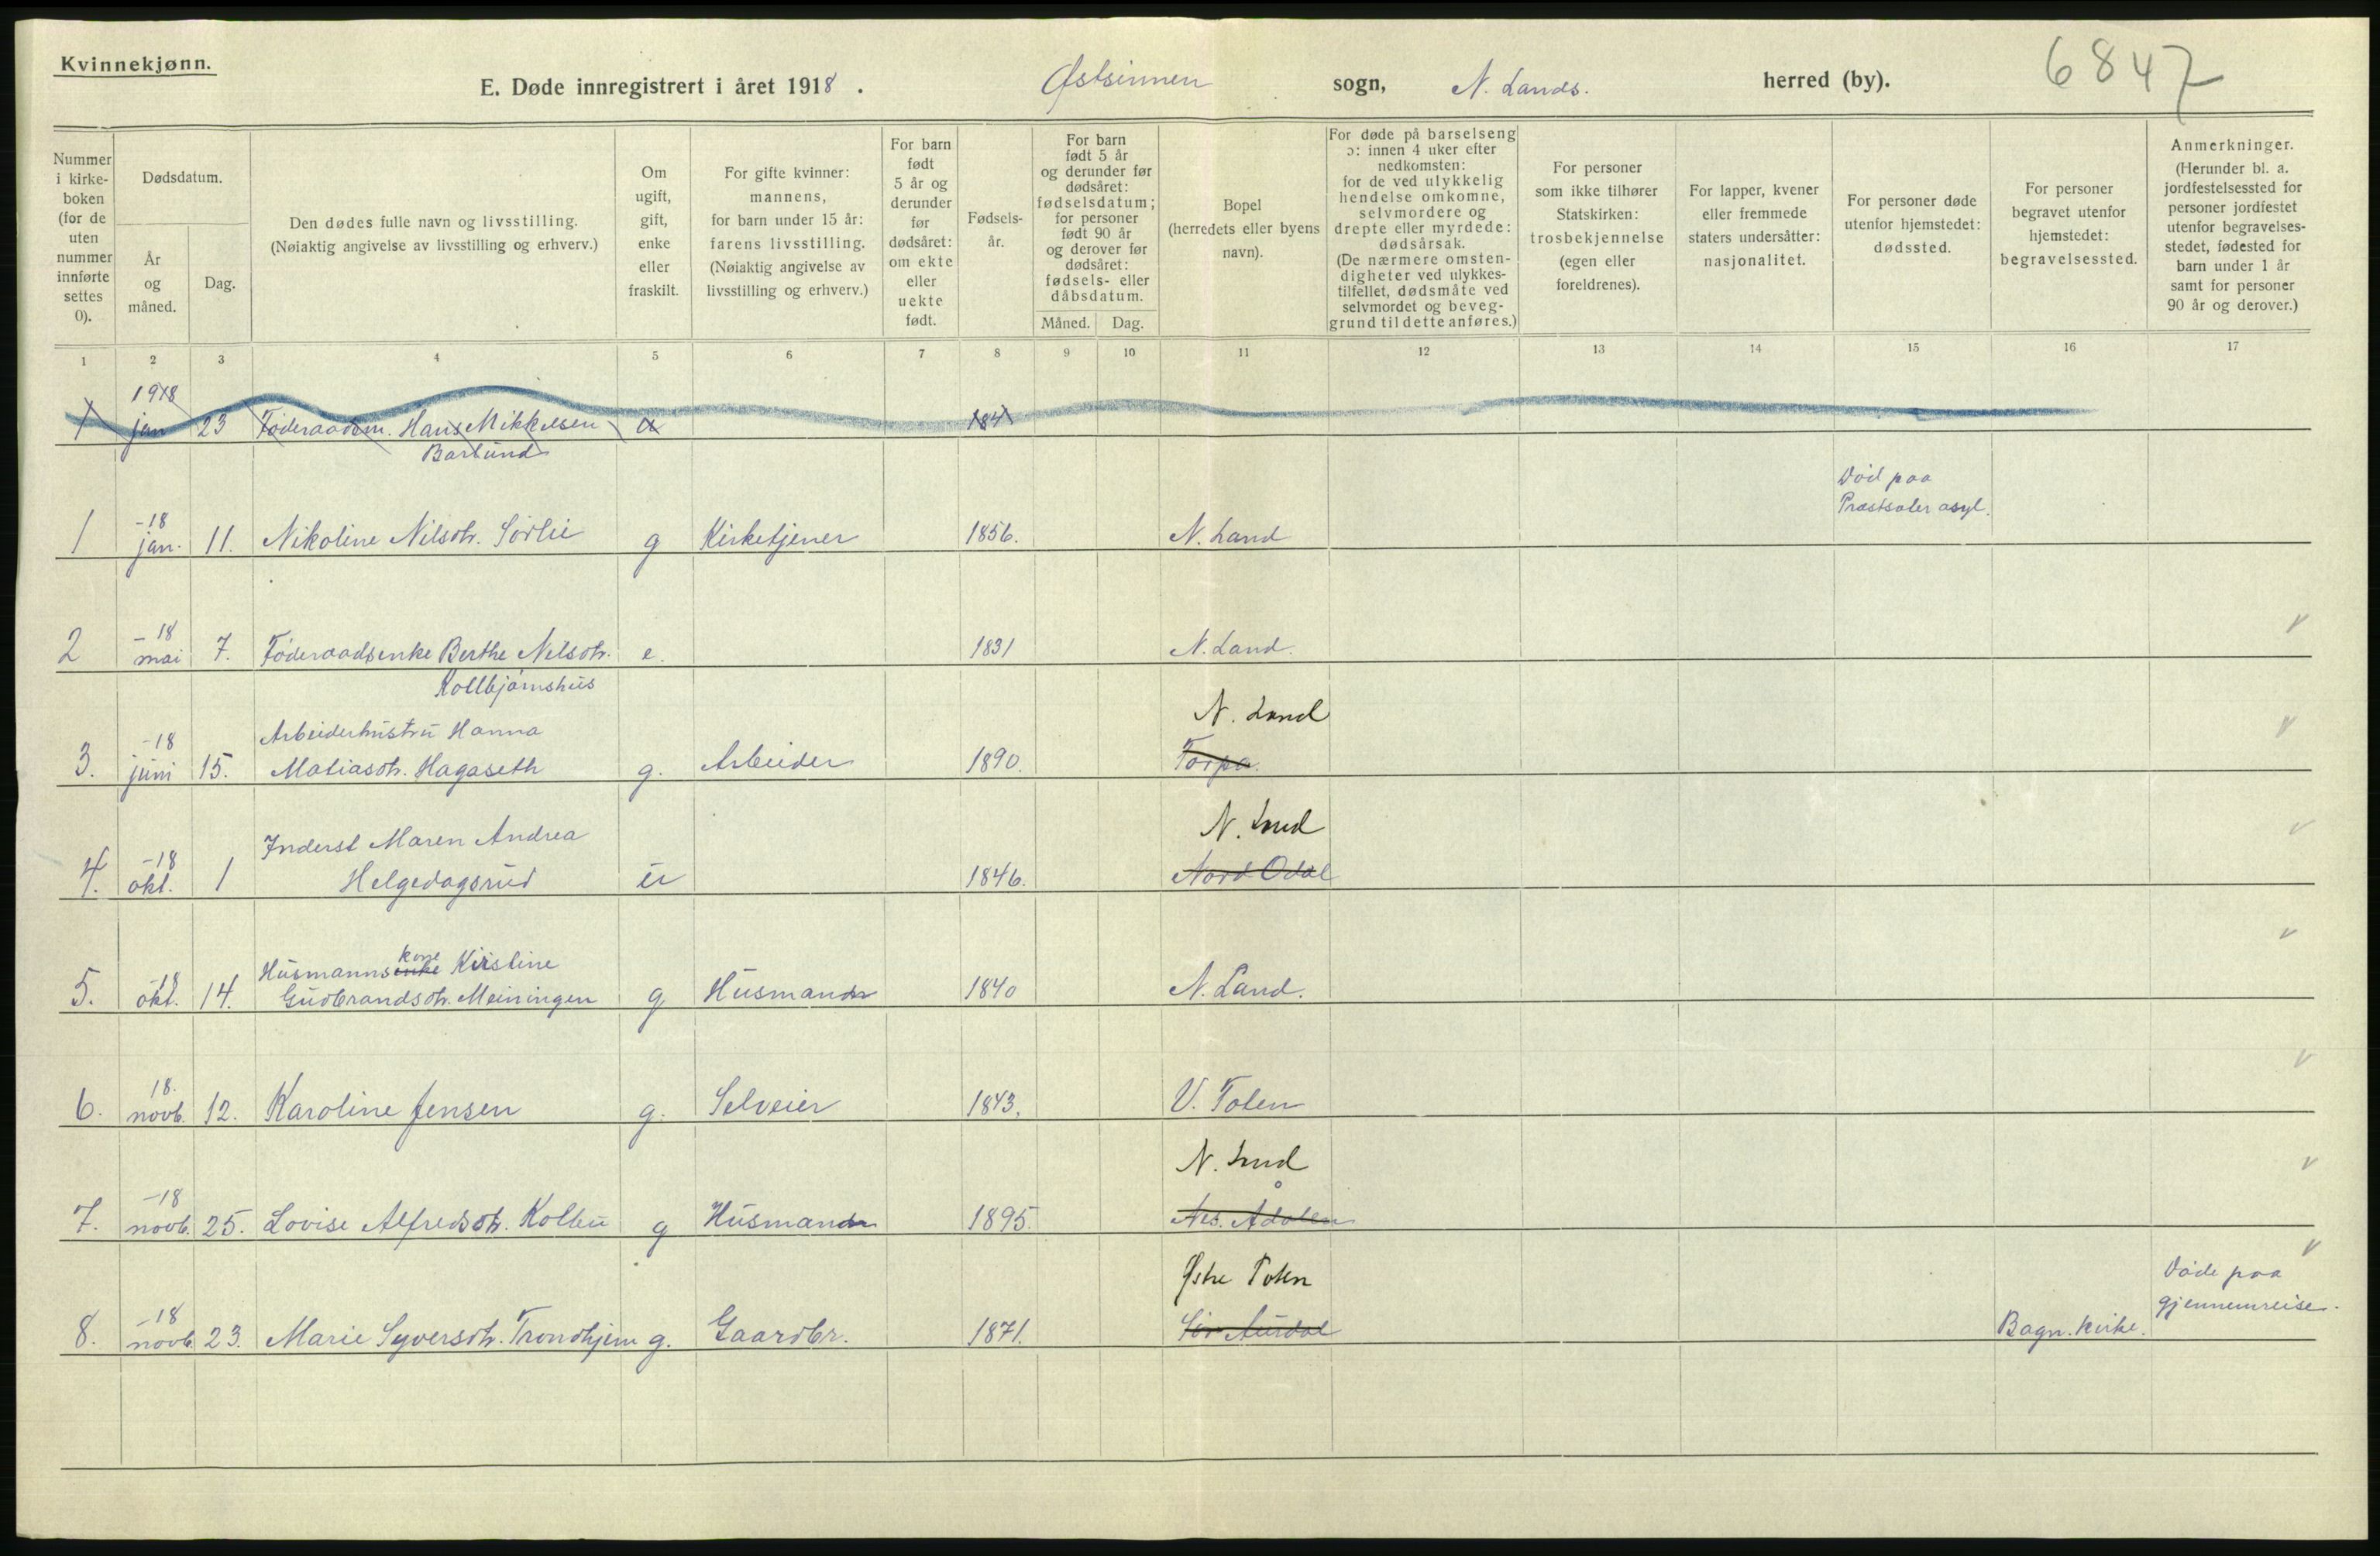 Kvinnekjønn.
E. Døde innregistrert i året 1918. Østsinnen sogn, N. Lands. herred (by). 6847
Nummer
i kirke-
boken
(for de
uten
nummer
innførte
settes
0).
Dødsdatum.
År
og
måned.
Dag.
Den dødes fulle navn og livsstilling.
(Nøiaktig angivelse av livsstilling og erhverv.)
Om
ugift,
gift,
enke
eller
fraskilt.
For gifte kvinner:
mannens,
for barn under 15 år:
farens livsstilling.
(Nøiaktig angivelse av
livsstilling og erhverv.)
For barn
født
5 år og
derunder
før
dødsåret:
om ekte
eller
uekte
født.
Fødsels-
år.
For barn
født 5 år
og derunder før
dødsåret:
fødselsdatum;
for personer
født 90 år
og derover før
dødsåret:
fødsels- eller
dåbsdatum.
Måned. Dag.
Bopel
(herredets eller byens
navn).
For døde på barselseng
ɔ: innen 4 uker efter
nedkomsten:
for de ved ulykkelig
hendelse omkomne,
selvmordere og
drepte eller myrdede:
dødsårsak.
(De nærmere omsten-
digheter ved ulykkes-
tilfellet, dødsmåte ved
selvmordet og beveg-
grund til dette anføres.)
For personer
som ikke tilhører
Statskirken:
trosbekjennelse
(egen eller
foreldrenes).
For lapper, kvener
eller fremmede
staters undersåtter:
nasjonalitet.
For personer døde
utenfor hjemstedet:
dødssted.
For personer
begravet utenfor
hjemstedet:
begravelsessted.
Anmerkninger.
(Herunder bl. a.
jordfestelsessted for
personer jordfestet
utenfor begravelses-
stedet, fødested for
barn under 1 år
samt for personer
90 år og derover.)
1 2 3 4 5 6 7 8 9 10 11 12 13 14 15 16 17
1918
1 jan 23 Føderaadsm. Hans Mikkelsen u 1841
Barlund
Död paa
Præstsæter asyl.
-18
1 jan. 11. Nikoline Nilsdtr. Sørlie g Kirketjener 1856. N. Land
-18
2 mai 7. Föderaadsenke Berthe Nilsdtr. e. 1831 N. Land.
Kollbjørnshus
N. Land
-18 Arbeiderhustru Hanna
3. juni 15. Matiasdtr. Hagaseth g. Arbeider 1890. Torpa.
N. Land
-18 Inderst Maren Andrea
4. okt. 1 Helgedagsrud u 1846. Nord Odal
kone
-18 Husmannsenke Kristine
5. okt. 14. Gudbrandsdtr. Meiningen g Husmands 1840 N. Land.
18.
6. novb. 12. Karoline Jensen g. Selveier 1843. V. Toten
N. Land
-18
7. novb. 25. Lovise Alfredsdtr. Kolbu g Husmands 1895. Nes. Ådalen
Østre Toten Döde paa
-18 gjennemreise.
8. novb. 23. Marie Syversdtr. Trondhjem g. Gaardbr. 1871. Sør Aurdal Bagn. Kirke.